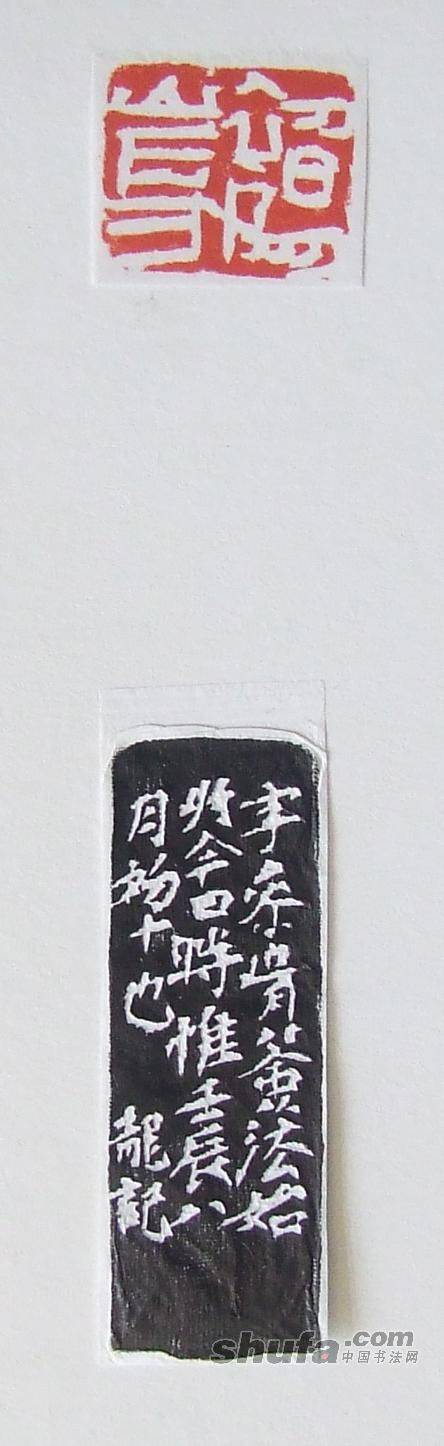 黄法始
於今日時惟壬辰八
月初十也 龍記
shufa.com
中国书法网